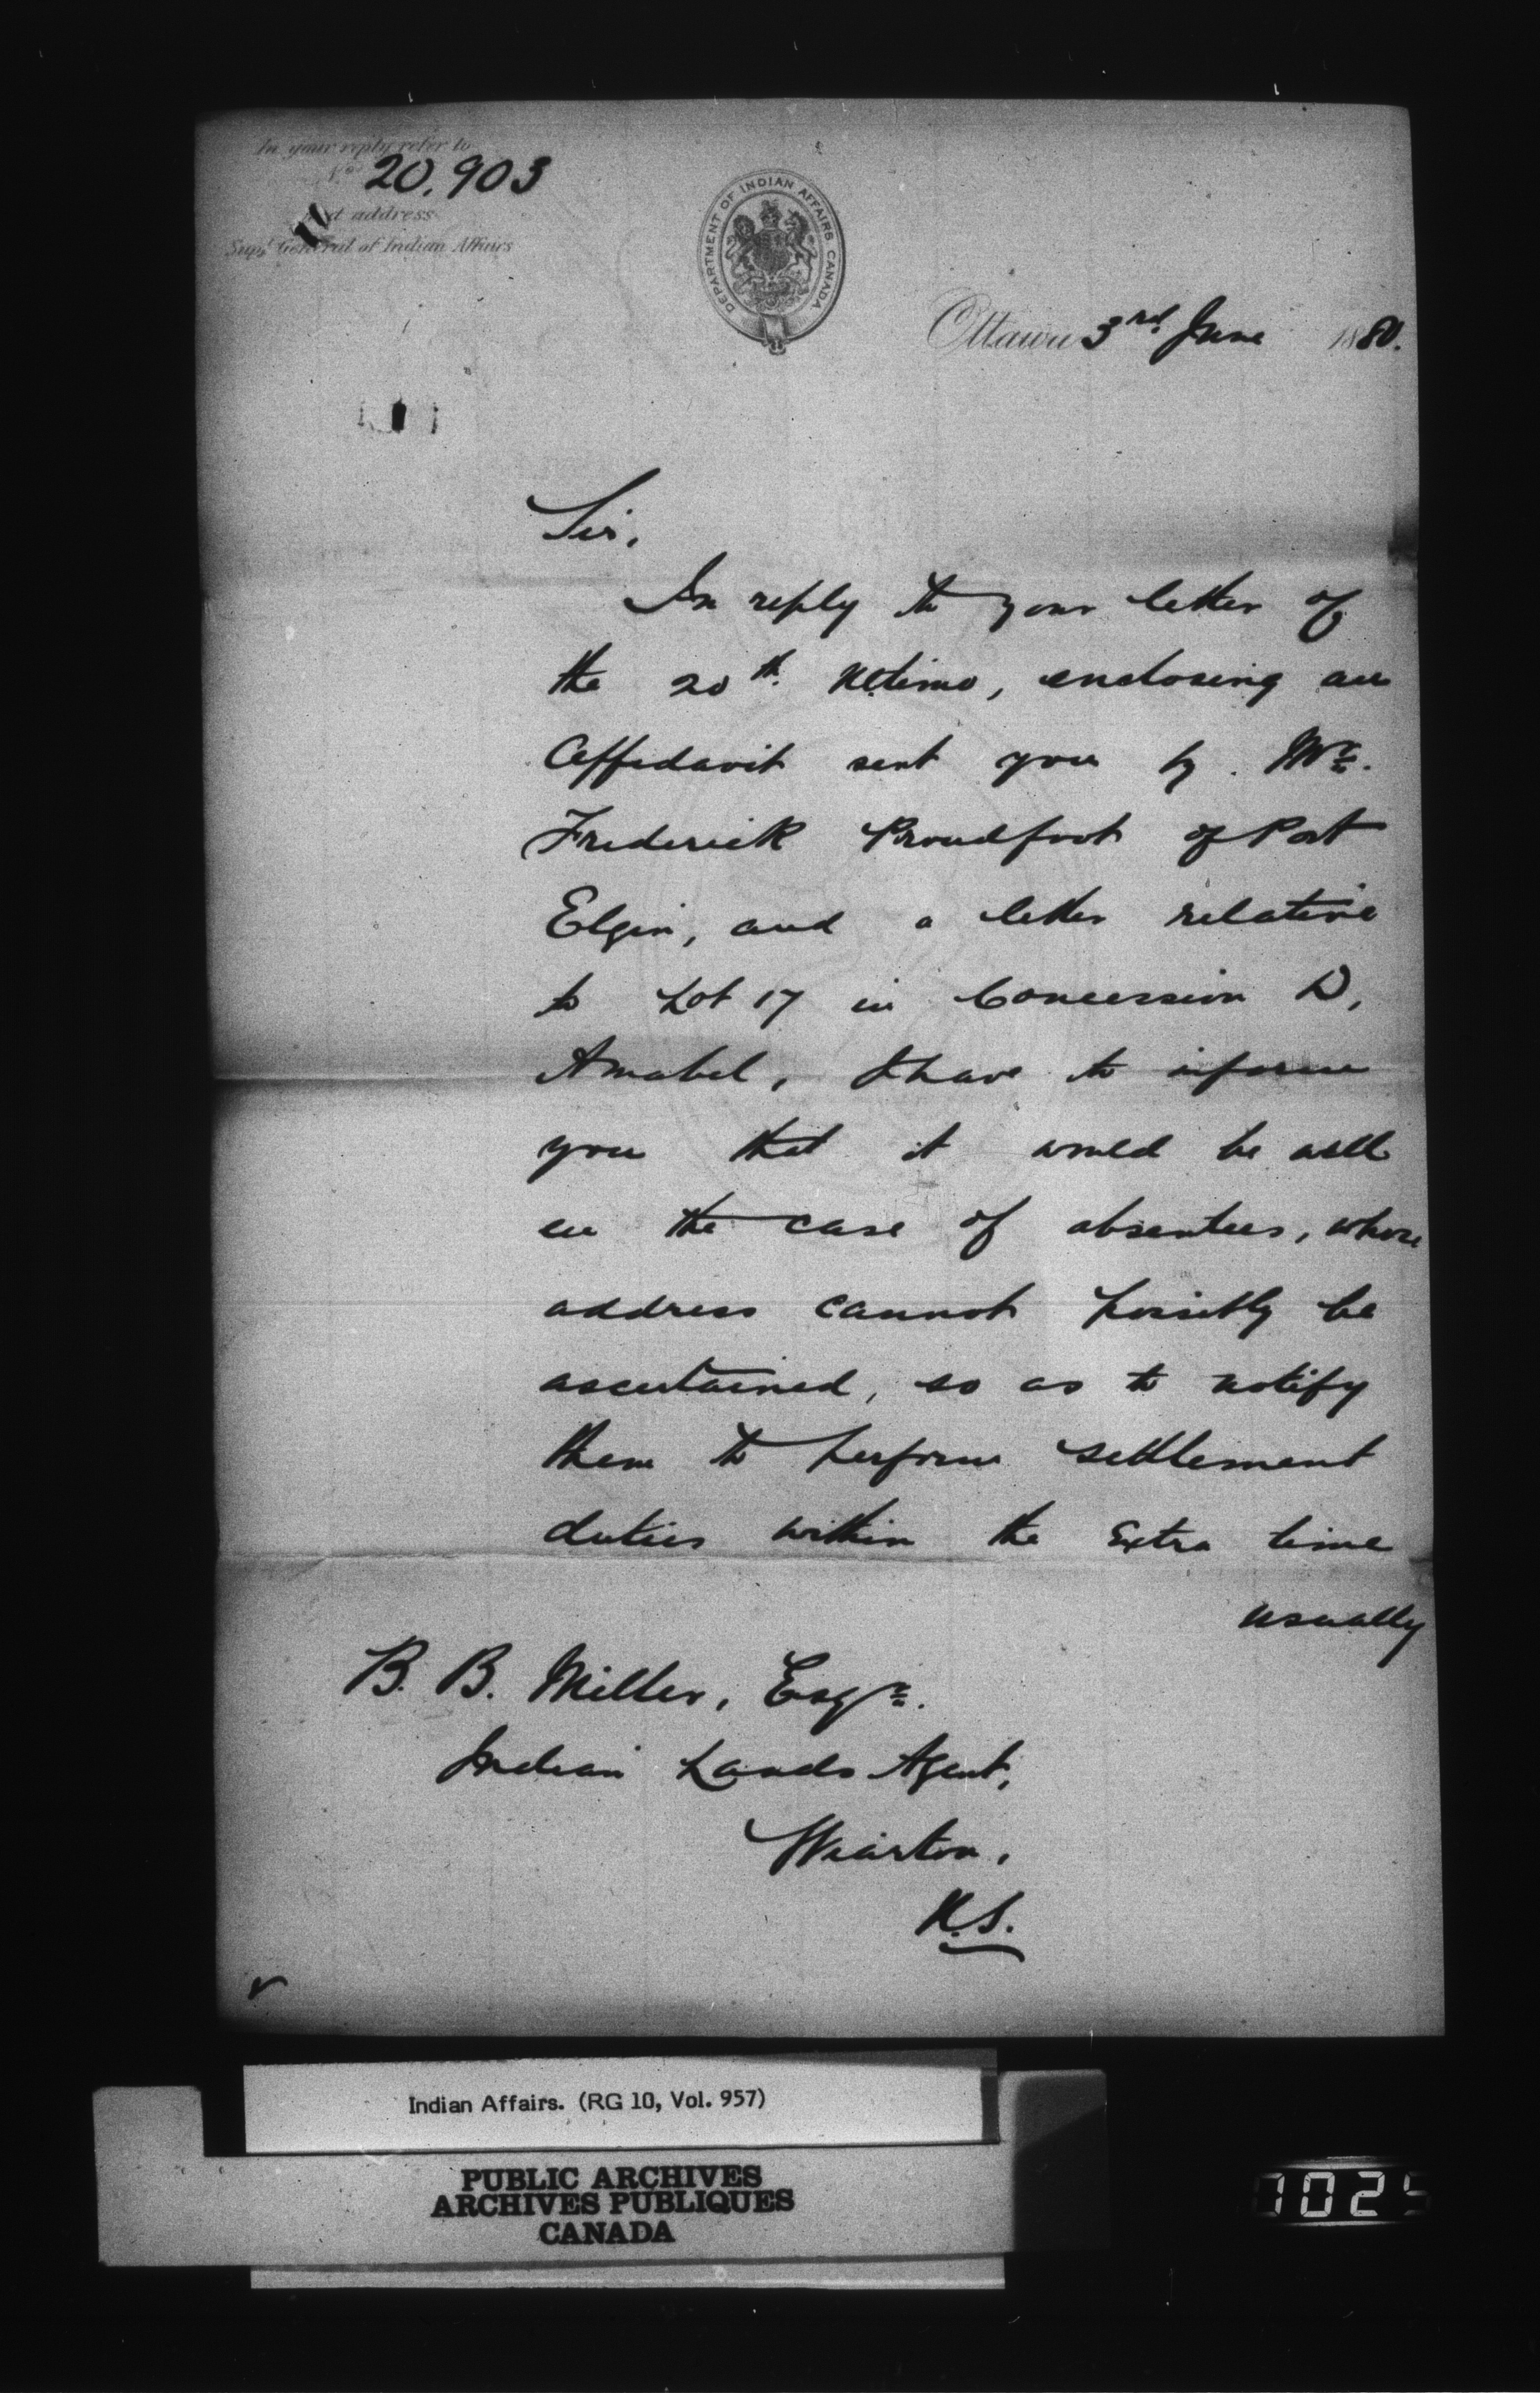 In your reply refer to
No 20,903
and address
Supt General of Indian Affairs
DEPARTMENT OF INDIAN AFFAIRS CANADA
Ottawa 3rd June 1880.
Sir,
In reply to your letter of
the 20th. ultimo, enclosing an
Affidavit sent you by Mr.
Frederick Proudfoot of Port
Elgin, and a letter relative
to Lot 17 in Concession D,
Amabel, I have to inform
you that it would be well
in the case of absentees, whose
address cannot possibly be
ascertained, so as to notify
them to perform settlement
duties within the extra time
usually
B. B. Miller, Esqr.
Indian Lands Agent,
Wiarton.
Indian Affairs. (RG 10, Vol. 957)
PUBLIC ARCHIVES
ARCHIVES PUBLIQUES
CANADA